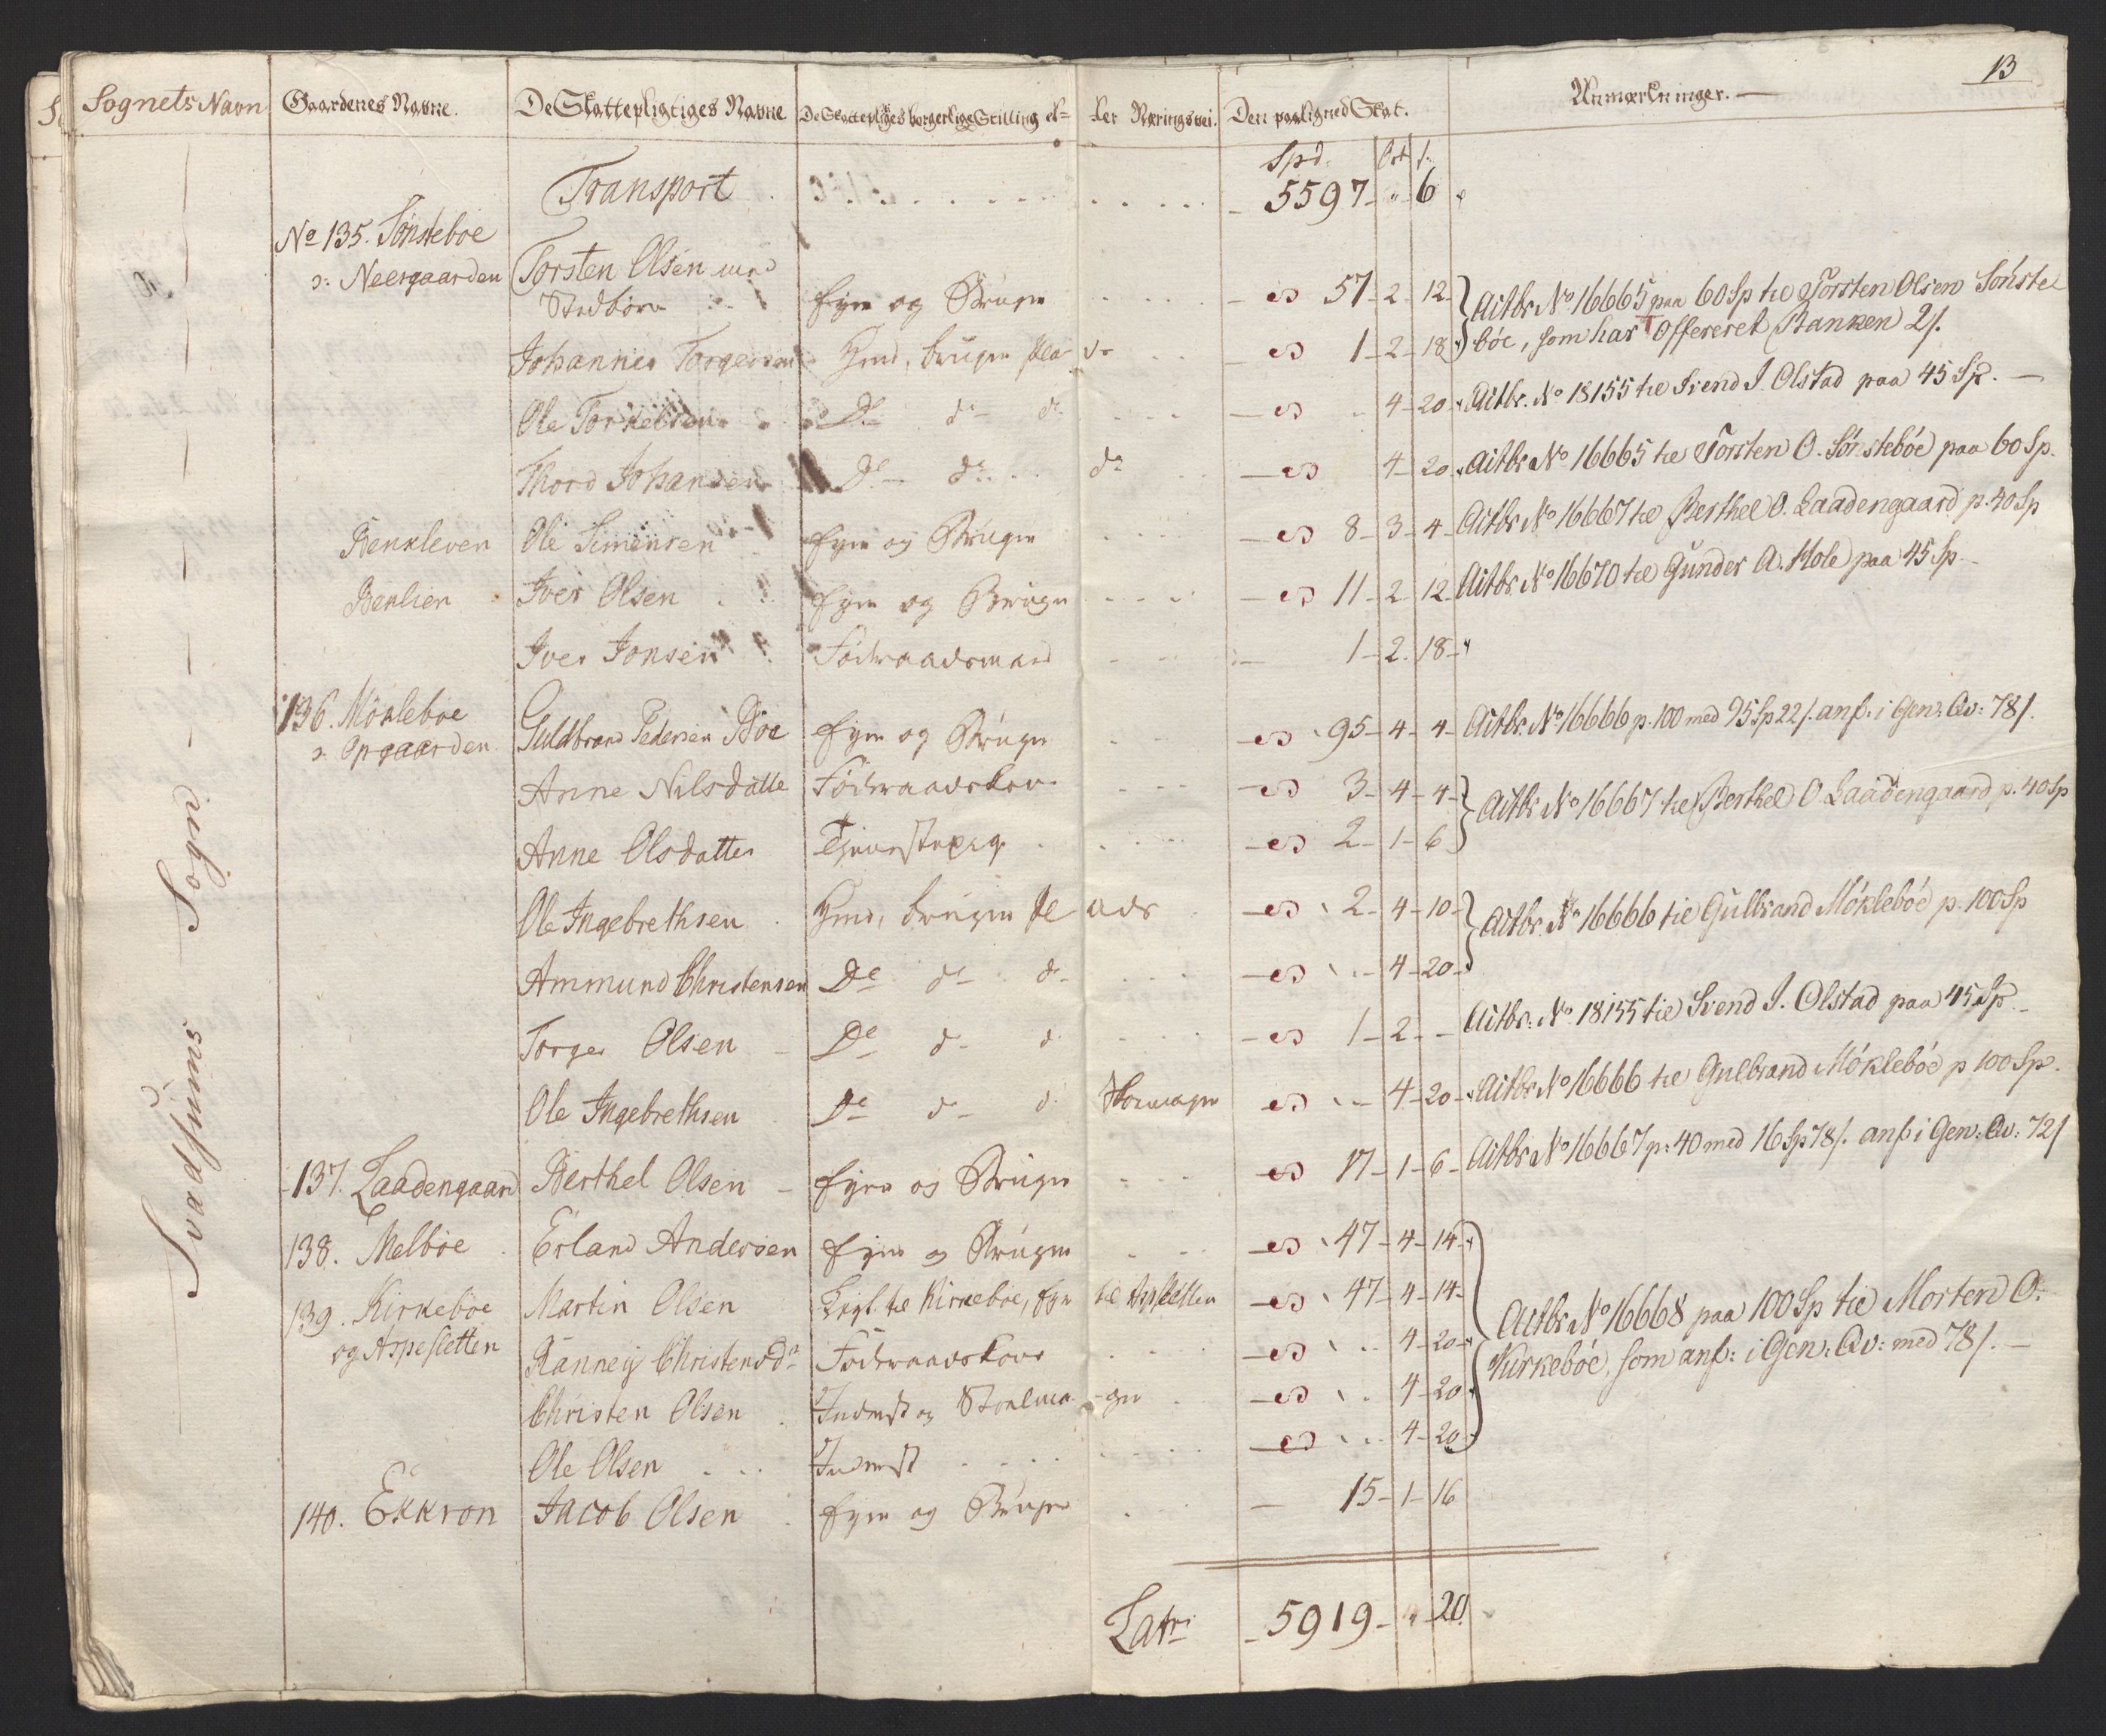 13
Sognets Navn Gaardenes Navne. De Skattepligtiges Navne De Skattepligtiges borgerlige Stilling el= ler Næringsvei. Den paalignede Skat. Anmærkninger.
Spd. Ort s.
Transport 5597 - " - 6
Svadsums Sogn
No 135. Sønsteboe
ɔ: Neergaarden Torsten Olsen med
Stedbørn Eyer og Bruger 57 - 2 - 12 Qvitbr. No 16665 paa 60 Sp til Torsten Olsen Sønste
Johannes Torgersen Huusmd, bruger Pla ds 1 - 2 - 18 bøe, som har Offereret Banken 2 s.
Ole Torkelsen Do do do 4 - 20 Qitbr. No 18155 til Svend I. Olstad paa 45 Sp.
Thord Johansen Do do do 4 - 20 Qitbr No 16665 til Torsten O. Sønstebøe paa 60 Sp.
Benkleven Ole Simensen Eyer og Bruger 8 - 3 - 4 Qitbr No 16667 til Berthel O. Laadengaard p. 40 Sp
Benlien Iver Olsen Eyer og Bruger 11 - 2 - 12 Qitbr. No 16670 til Gunder A. Hole paa 45 Sp
Iver Jonsen Føderaadsmand 1 - 2 - 18
136. Mokleboe
ɔ: Opgaarden Guldbrand Pedersen Boe Eyer og Bruger 95 - 4 - 4 Qitbr. No 16666 p. 100 med 95 Sp 22 s. anf. i Gen: Qv: 78 s.
Anne Nilsdatte Føderaadskone 3 - 4 - 4 Qitbr No 16667 til Berthel O Laadengaard p. 40 Sp
Anne Olsdatter Tjenestepig 2 - 1 - 6
Ole Ingebrethsen Huusmd, bruger Pl ads 2 - 4 - 10 Qitbr. No 16666 til Gulbrand Møklebøe p. 100 Sp
Ammund Christensen Do do do 4 - 20
Torger Olsen Do do do 1 - 2 - Qitbr: No 18155 til Svend I. Olstad paa 45 Sp
Ole Ingebrethsen Do do do Skomager 4 - 20 Qitbr No 16666 til Gulbrand Møklebøe p 100 Sp.
137. Laadengaard Berthel Olsen Eyer og Bruger 17 - 1 - 6 Qitbr No 16667 p: 40 med 16 Sp 78 s. anf i Gen: Qv: 72 s
138. Melbøe Erland Andersen Eyer og Bruger 47 - 4 - 14
139. Kirkeboe Martin Olsen til Kirkeboe, Eyer til 47 - 4 - 14 Qitbr No 16668 paa 100 Sp til Morten O.
og Aspesletten Ranney Christensdr Føderaadskone 4 - 20 Kirkebøe, som anf: i Gen: Qv: med 78 s.
Christen Olsen Inderst og Stoelma- ger 4 - 20
Ole Olsen Inderst 4 - 20
140. Ekkron Jacob Olsen Eyer og Bruger 15 - 1 - 16
Latr 5919 - " - 20